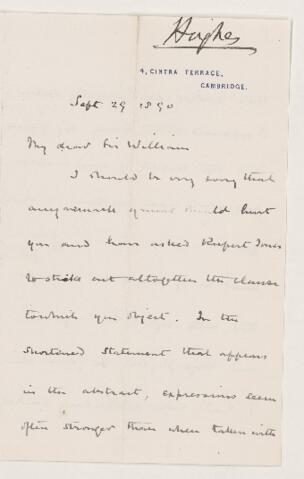 Hughes
4, CINTRA TERRACE,
CAMBRIDGE.
Sept 29 1890
My dear Sir William
I should be very sorry that
any remark of mine should hurt
you and have asked Rupert Jones
to strike out altogether the clause
to which you object. In the
shortened statement that appears
in the abstract, expressions seem
often stronger than when taken with